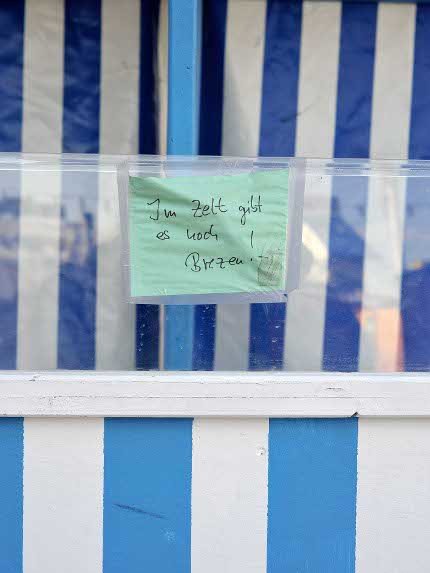 Im Zelt gibt
es noch !
Brezen!